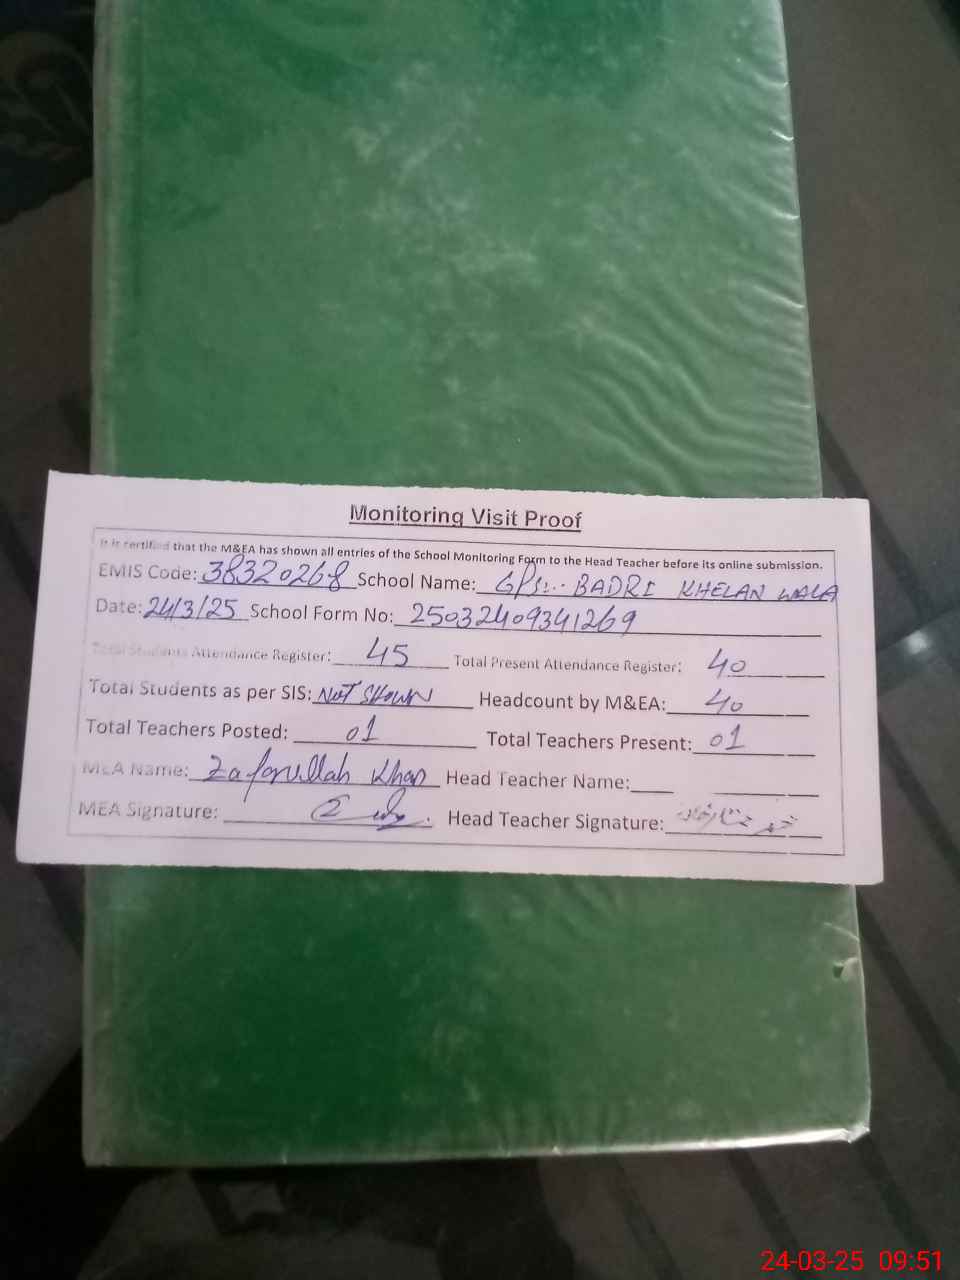 Monitoring Visit Proof
It is certified that the M&EA has shown all entries of the School Monitoring Form to the Head Teacher before its online submission.
EMIS Code: 38320268 School Name: GPS:.. BADRI KHELAN WALA
Date: 24/3/25 School Form No: 25032409341269
Total Students Attendance Register: 45 Total Present Attendance Register: 40
Total Students as per SIS: Not Shown Headcount by M&EA: 40
Total Teachers Posted: 01 Total Teachers Present: 01
MEA Name: Zafarullah Khan Head Teacher Name:
MEA Signature: Head Teacher Signature:
24-03-25 09:51